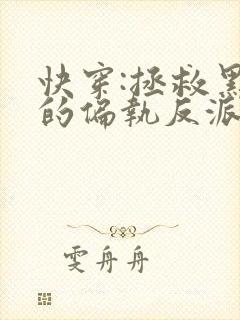 快穿:拯救黑
的偏執反派
雯舟舟